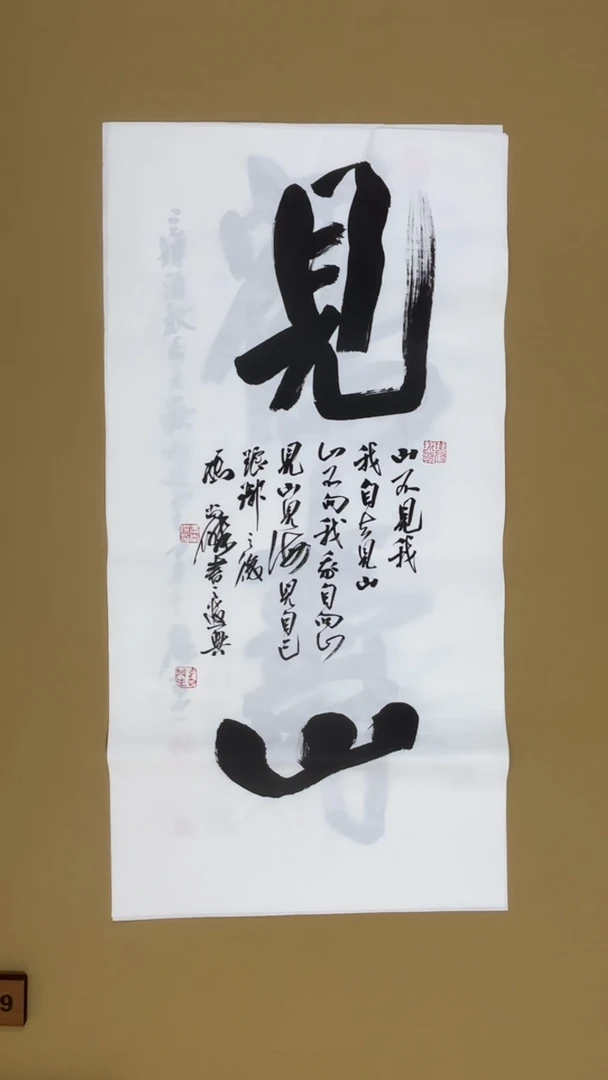 見
山
山不見我
我自去見山
山不向我我自向山
見山見海見自己
之後
書之遣興
9